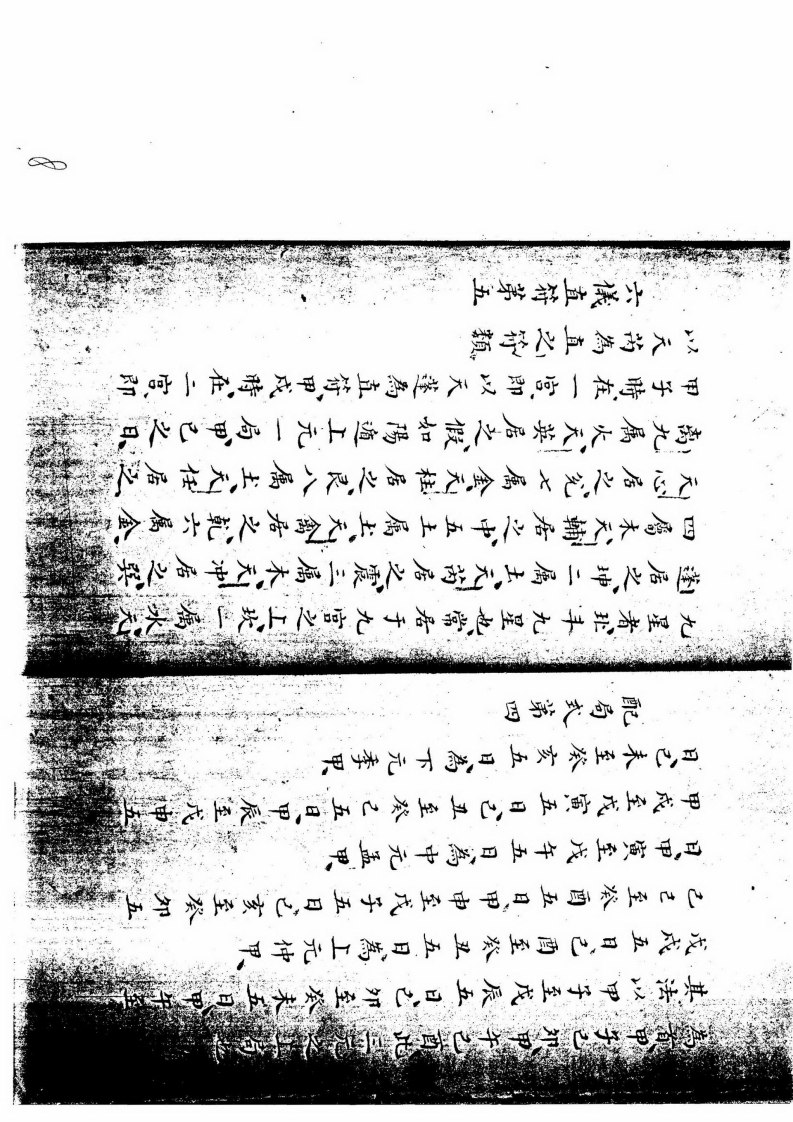 8
為首甲子己卯甲午己酉此三元之上局也
其法以甲子至戊辰五日、己卯至癸未五日、甲午至
戊戌五日、己酉至癸丑五日、為上元仲甲、
己巳至癸酉五日、甲申至戊子五日、己亥至癸卯五
日、甲寅至戊午五日、為中元孟甲、
甲戌至戊寅五日、己丑至癸巳五日、甲辰至戊申五
日、己未至癸亥五日、為下元季甲、
配局式第四
九星者、北斗九星也、常居于九宮之上、坎一属水、天
蓬居之、坤二属土、天芮居之、震三属木、天冲居之、巽
四属木、天輔居之、中五土属土、天禽居之、乾六属金、
天心居之、兌七属金、天柱居之、艮八属土、天任居之、
离九属火、天英居之、假如陽遁上元一局、甲己之日、
甲子時、在一宮、即以天蓬為直符、甲戌時、在二宮、即
以天芮為直符之類、
六儀直符第五